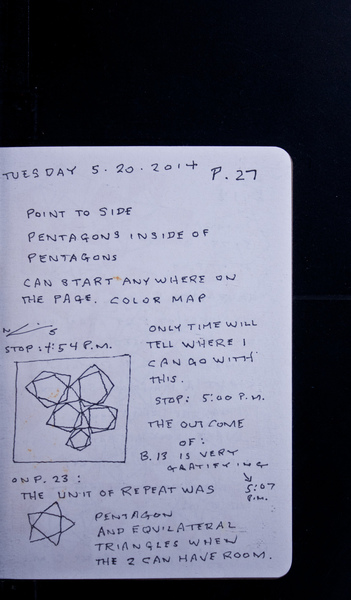 TUESDAY 5.20.2014 P.27
POINT TO SIDE
PENTAGONS INSIDE OF
PENTAGONS
CAN START ANYWHERE ON
THE PAGE. COLOR MAP
N S
STOP: 4:54 P.M.
ONLY TIME WILL
TELL WHERE I
CAN GO WITH
THIS.
STOP: 5:00 P.M.
THE OUTCOME
OF:
B.13 IS VERY
GRATIFYING
5:07
P.M.
ON P. 23:
THE UNIT OF REPEAT WAS
PENTAGON
AND EQUILATERAL
TRIANGLES WHEN
THE 2 CAN HAVE ROOM.